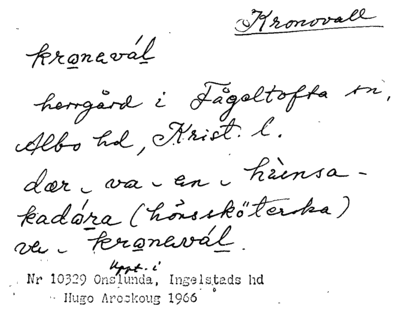 Kronovall
kronavál
herrgård i Fågeltofta sn,
Albo hd, Krist. l.
dær ‿ va ‿ en ‿ hø̀nsa-
kadára (hönssköterska)
ve ‿ kronavál.
Uppt. i
Nr 10329 Onslunda, Ingelstads hd
Hugo Areskoug 1966